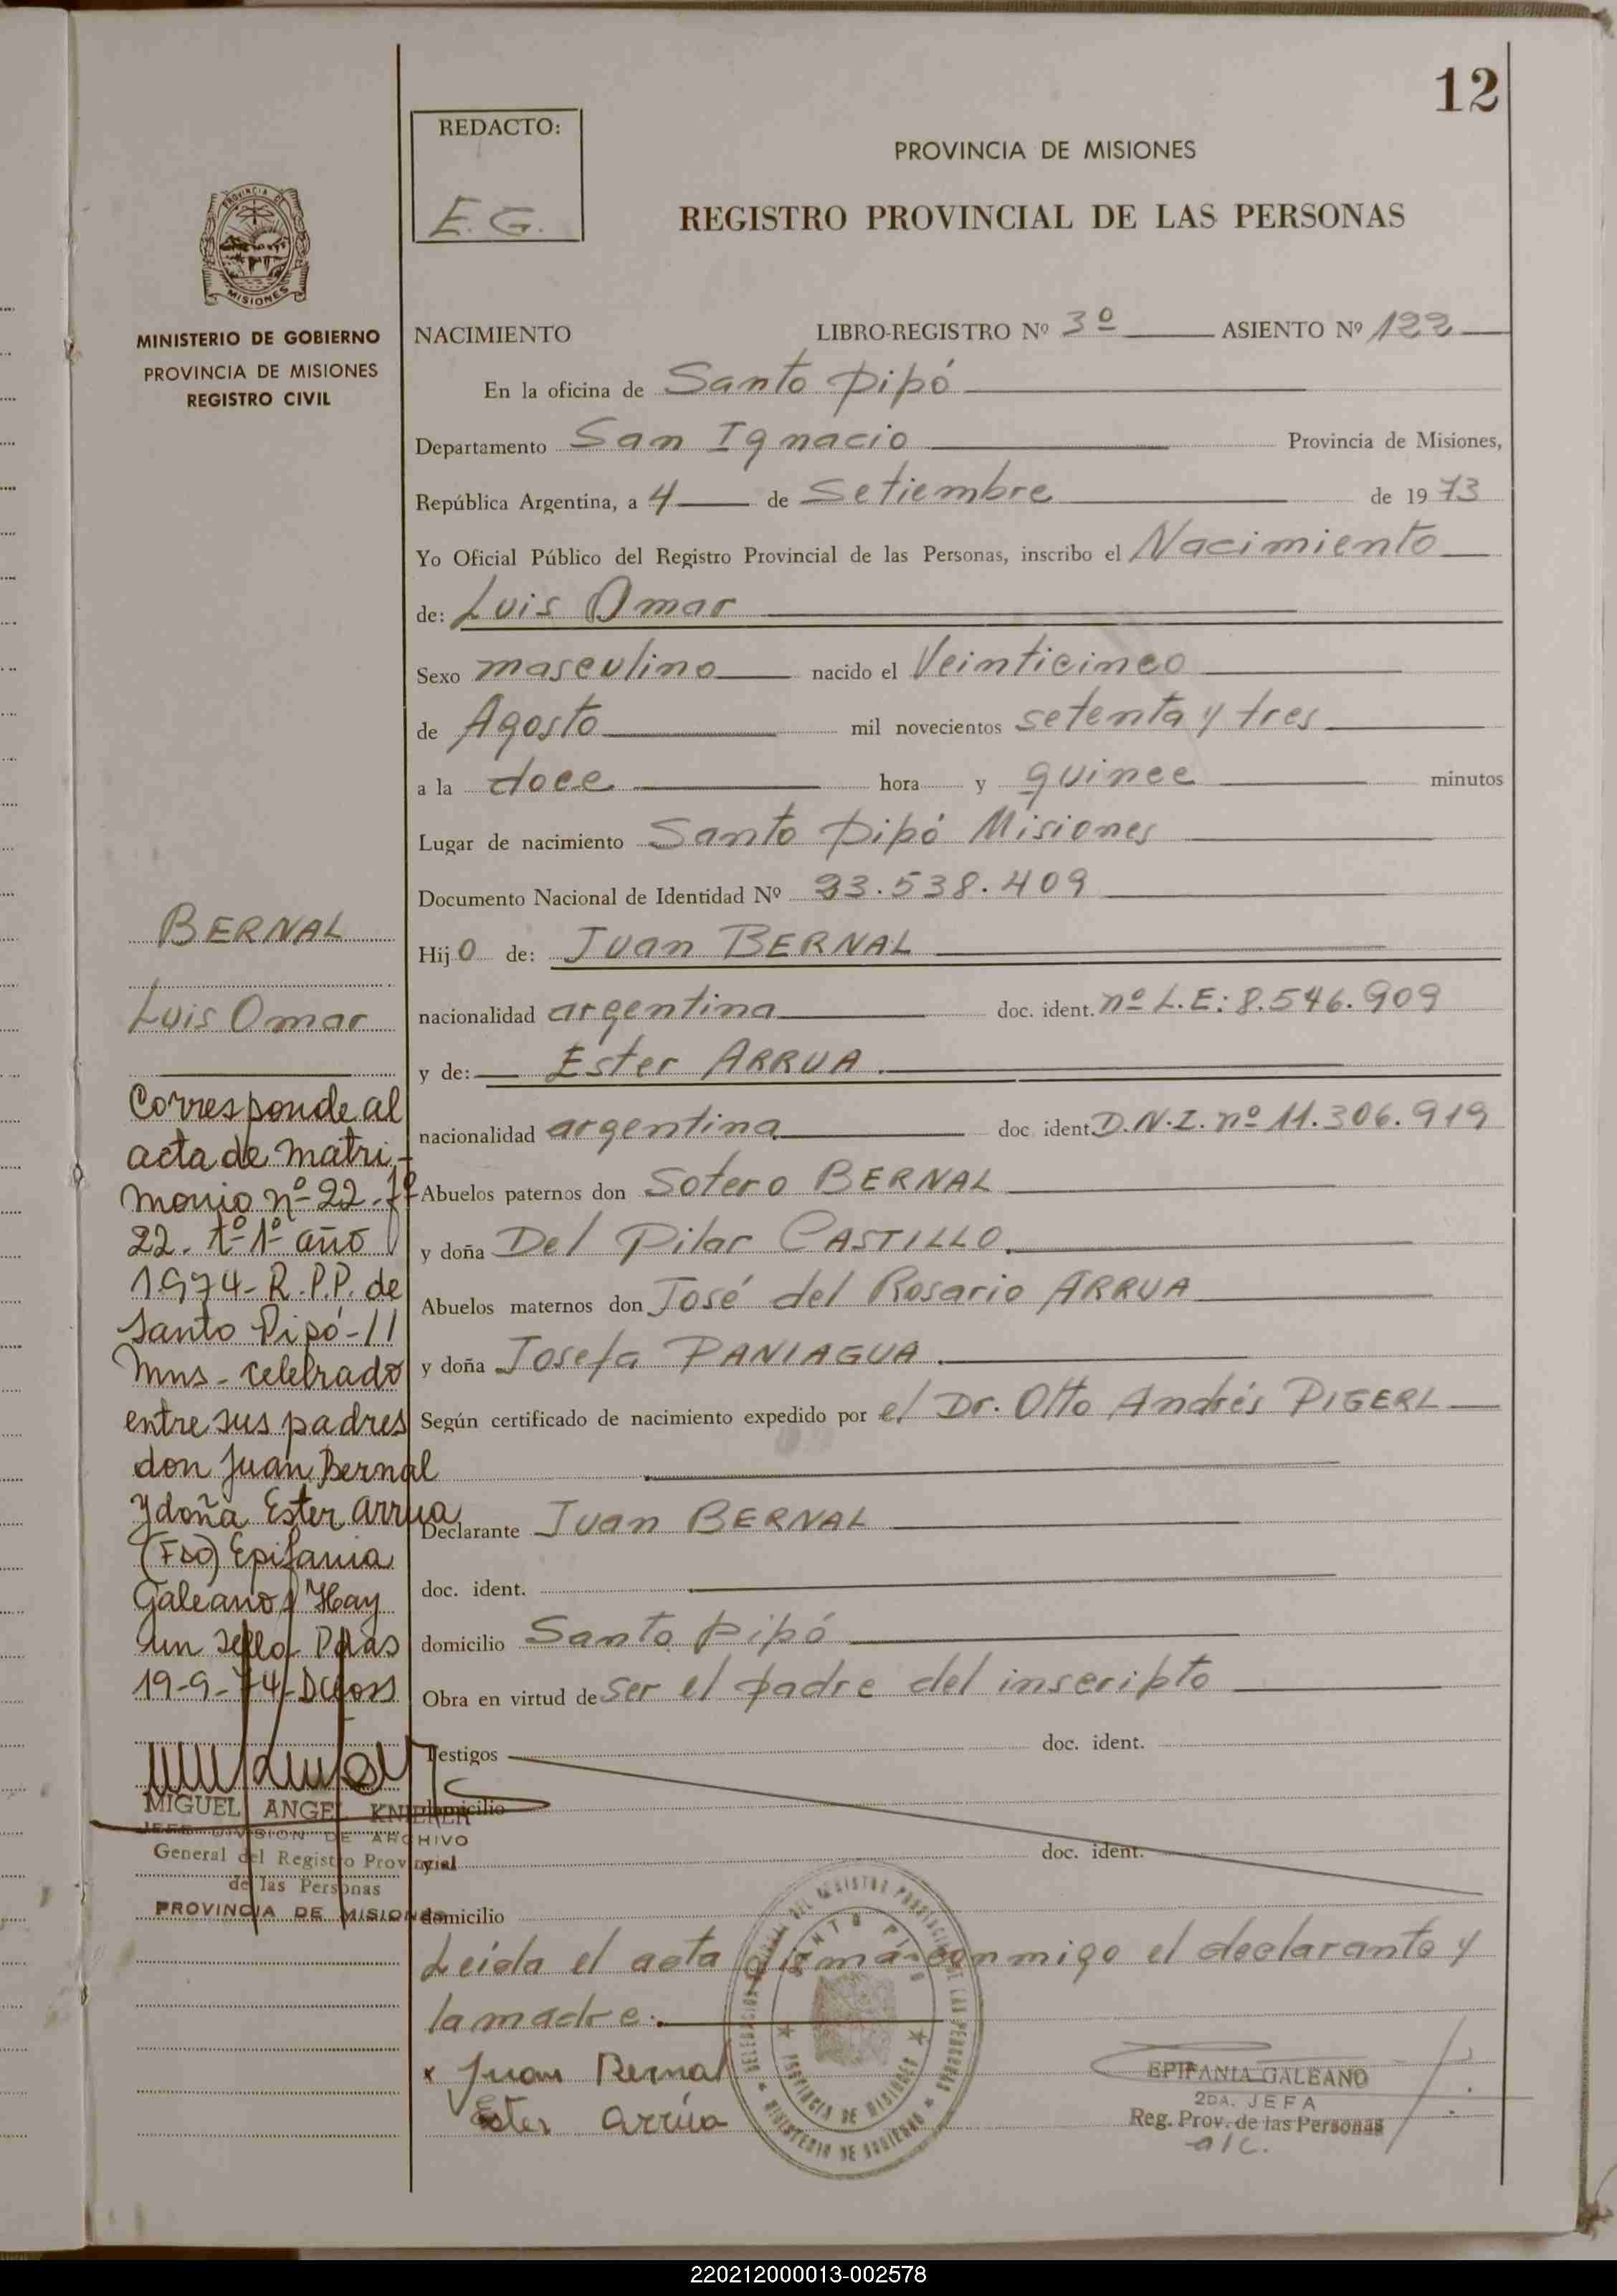 12
REDACTO:
E. G.
PROVINCIA DE MISIONES
REGISTRO PROVINCIAL DE LAS PERSONAS
PROVINCIA DE
MISIONES
MINISTERIO DE GOBIERNO
PROVINCIA DE MISIONES
REGISTRO CIVIL
NACIMIENTO LIBRO-REGISTRO Nº 3º ASIENTO Nº 122
En la oficina de Santo Pipó
Departamento San Ignacio Provincia de Misiones,
República Argentina, a 4 de Setiembre de 19 73
Yo Oficial Público del Registro Provincial de las Personas, inscribo el Nacimiento
de: Luis Omar
Sexo masculino nacido el Veinticinco
de Agosto mil novecientos setenta y tres
a la doce hora y quince minutos
Lugar de nacimiento Santo Pipó Misiones
Documento Nacional de Identidad Nº 23.538.409
Hij o de: Juan BERNAL
nacionalidad argentina doc. ident. nº L.E: 8.546.909
y de: Ester ARRUA.
nacionalidad argentina doc. ident. D.N.I. nº 11.306.919
Abuelos paternos don Sotero BERNAL
y doña Del Pilar CASTILLO.
Abuelos maternos don José del Rosario ARRUA
y doña Josefa PANIAGUA.
Según certificado de nacimiento expedido por el Dr. Otto Andrés PIGERL
Declarante Juan BERNAL
doc. ident.
domicilio Santo Pipó
Obra en virtud de ser el padre del inscripto
Testigos doc. ident.
domicilio
y doc. ident.
domicilio
Leída el acta firma conmigo el declarante y
la madre.
x Juan Bernal
Ester Arrúa
EPIFANIA GALEANO
2DA. JEFA
Reg. Prov. de las Personas
a/c.
BERNAL
Luis Omar
Corresponde al
acta de matri-
monio nº 22. fº
22. tº 1º año
1974- R.P.P. de
Santo Pipó-//
Mns- celebrado
entre sus padres
don Juan Bernal
y doña Ester Arrua
(Fdo) Epifania
Galeano/ Hay
un sello- Pdas
19-9-74-
MIGUEL ANGEL KNIERER
JEFE DIVISION DE ARCHIVO
General del Registro Provincial
de las Personas
PROVINCIA DE MISIONES
SANTO PIPO
PROVINCIA DE MISIONES
MINISTERIO DE GOBIERNO
220212000013-002578